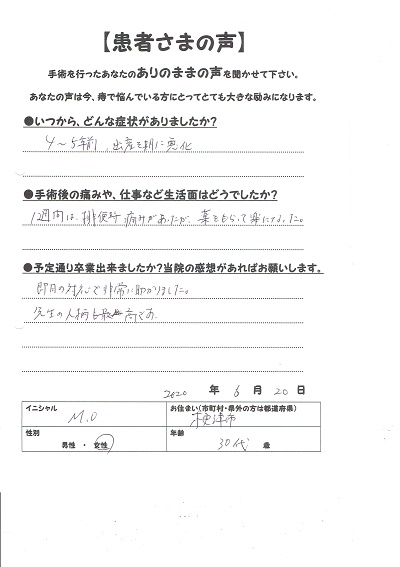 【患者さまの声】
手術を行ったあなたのありのままの声を聞かせて下さい。
あなたの声は今、痔で悩んでいる方にとってとても大きな励みになります。
●いつから、どんな症状がありましたか?
4〜5年前 、出産を期に悪化
●手術後の痛みや、仕事など生活面はどうでしたか?
1週間は、排便時 痛みがあったが、薬をもらって楽になった。
●予定通り卒業出来ましたか?当院の感想があればお願いします。
即日の対応で非常に助かりました。
先生の人柄も最高です。
2020 年 6 月 20 日
イニシャル お住まい(市町村・県外の方は都道府県)
M.O 木更津市
性別 年齢
男性 ・ 女性 30代 歳